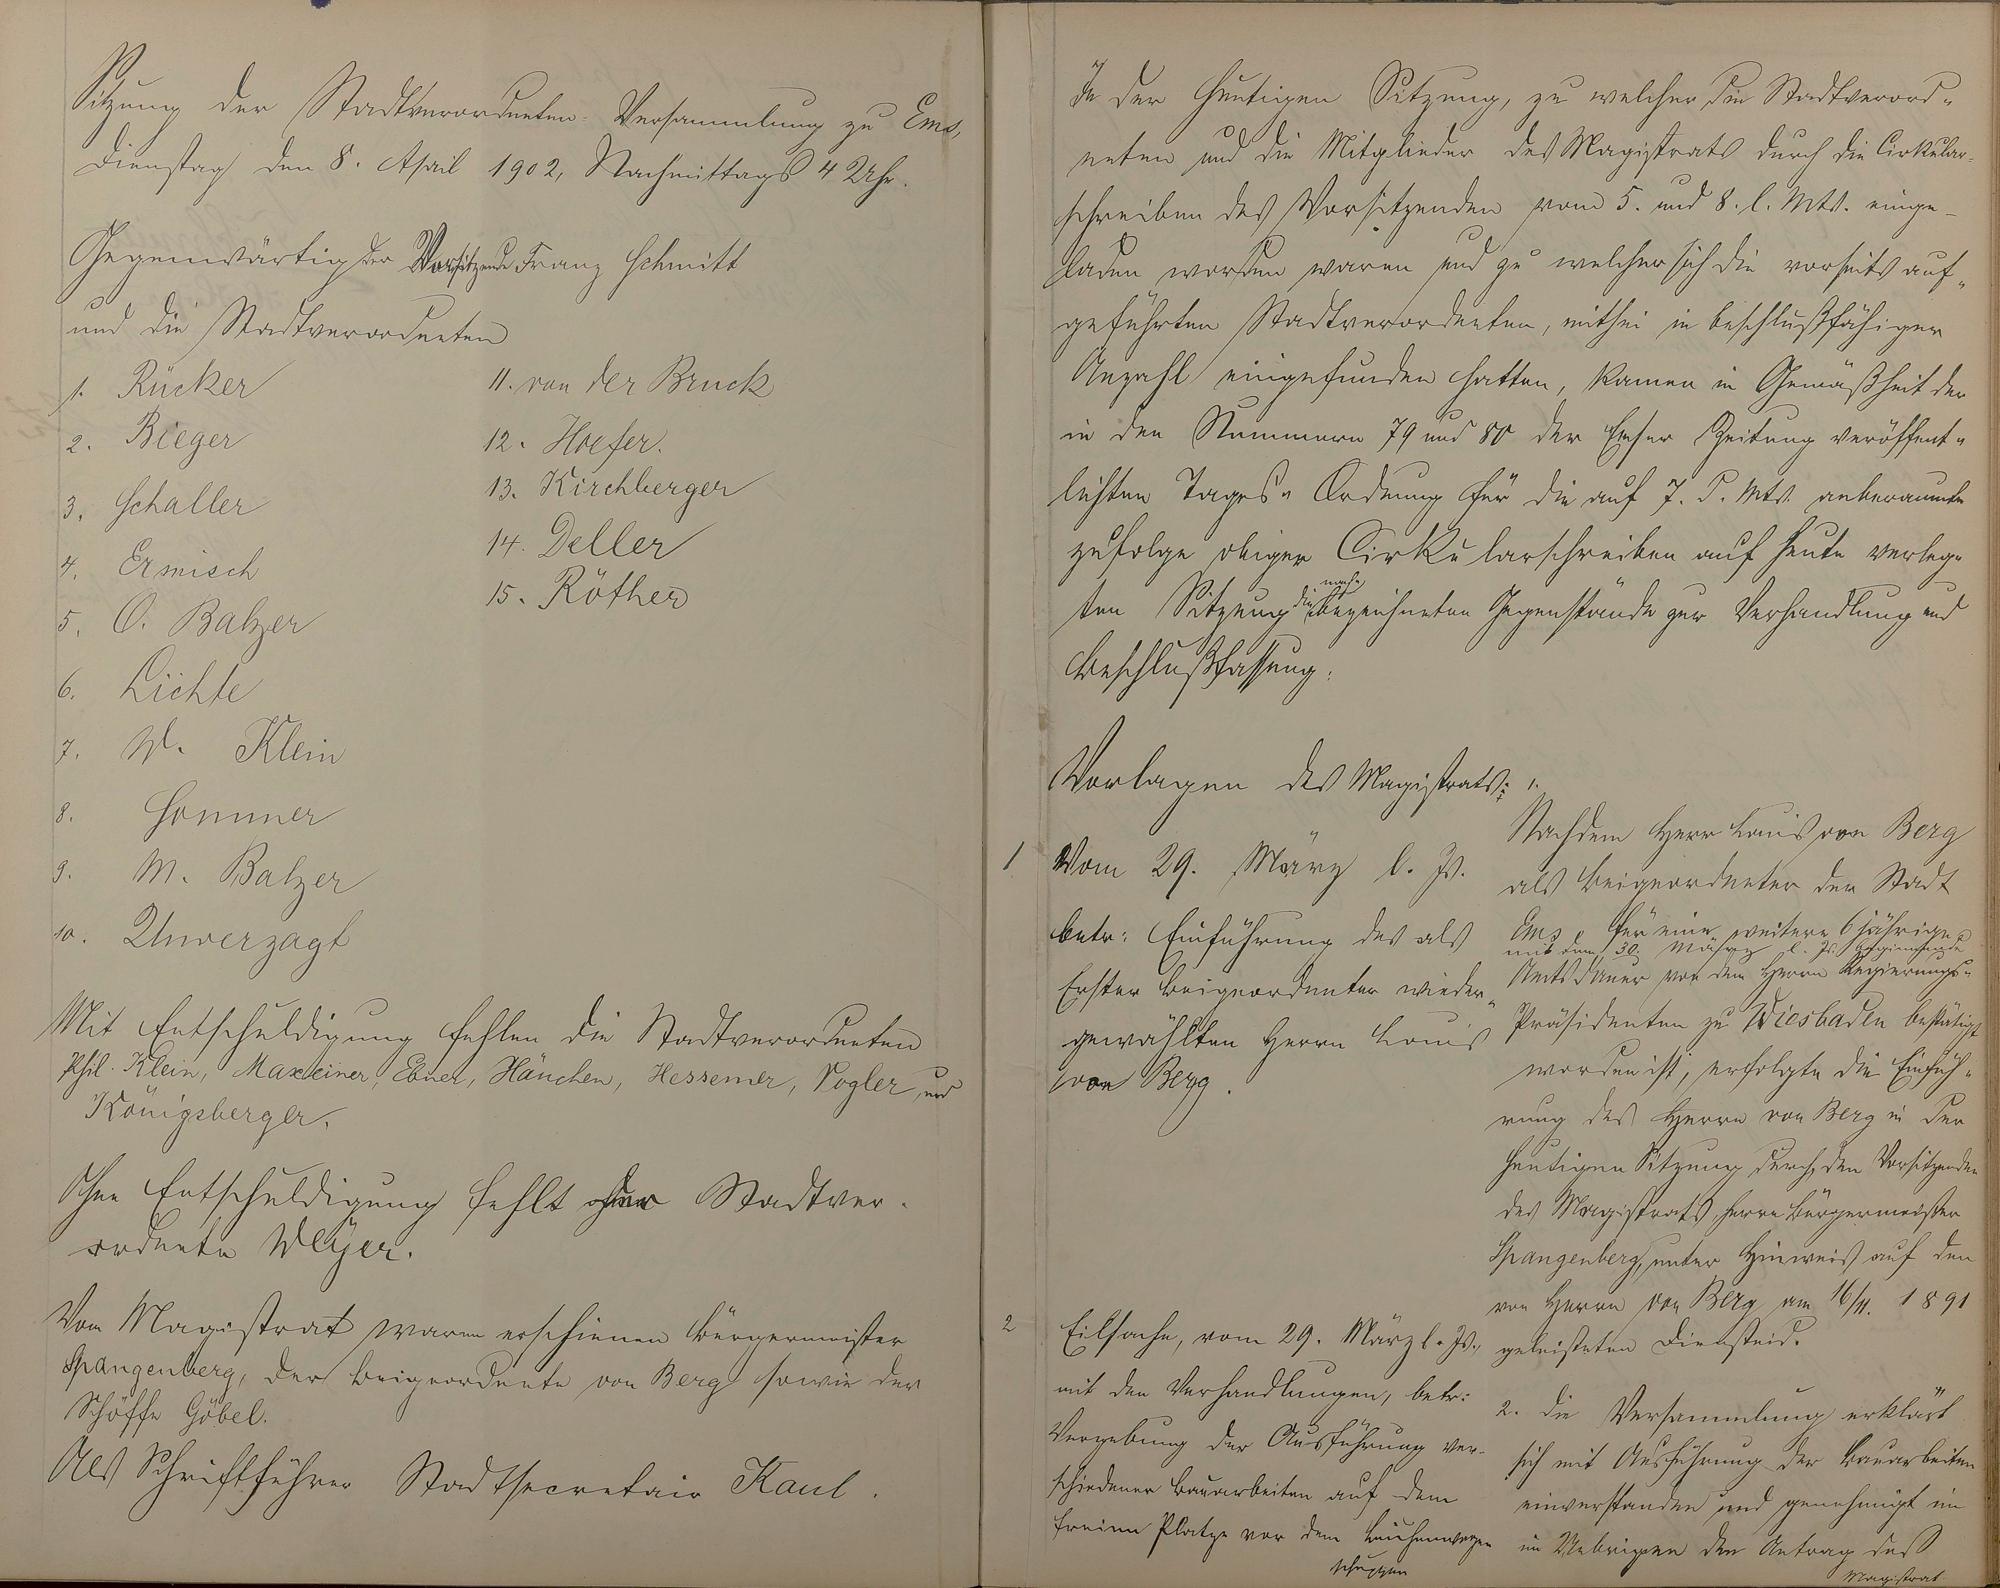 Sitzung der Stadtverordneten-Versammlung zu Ems,
Dienstag den 8. April 1902, Nachmittags 4 Uhr.
Gegenwärtig der Vorsitzende Franz Schmitt
und die Stadtverordneten
1. Rücker
2. Bieger
3. Schaller
4. Ermisch
5. O. Balzer
6. Lichte
7. W. Klein
8. Sommer
9. M. Balzer
10. Unverzagt
11. von der Bruck
12. Hoefer.
13. Kirchberger
14. Deller
15. Röther
Mit Entschuldigung fehlen die Stadtverordneten
Phil. Klein, Maxeiner, Ebner, Hänchen, Hessemer, Vogler und
Königsberger.
Ohne Entschuldigung fehlt der Stadtver-
ordnete Weyer.
Vom Magistrat waren erschienen Bürgermeister
Spangenberg, der Beigeordnete von Berg sowie der
Schöffe Göbel.
Als Schriftführer Stadtsecretair Kaul.
In der heutigen Sitzung, zu welcher die Stadtverord-
neten und die Mitglieder des Magistrats durch die Cirkular-
schreiben des Vorsitzenden vom 5. und 8. l. Mts. einge-
laden worden waren und zu welcher sich die vorseits auf-
geführten Stadtverordneten, mithin in beschlußfähiger
Anzahl eingefunden hatten, kamen in Gemäßheit der
in den Nummern 79 und 80 der Emser Zeitung veröffent-
lichten Tages-Ordnung für die auf 7. d. Mts. anberaumte
zufolge obigen Cirkularschreiben auf heute verleg-
ten Sitzung die nach bezeichneten Gegenstände zur Verhandlung und
Beschlußfassung:
Vorlagen des Magistrats:
1 Vom 29. März l. Js.
betr: Einführung des als
Erster Beigeordneter wieder-
gewählten Herrn Louis
von Berg.
1.
Nachdem Herr Louis von Berg
als Beigeordneter der Stadt
Ems für eine weitere 6 jährige
mit dem 30 März l. Js. beginnende
Amtsdauer von dem Herrn Regierungs-
Präsidenten zu Wiesbaden bestätigt
worden ist, erfolgte die Einfüh-
rung des Herrn von Berg in der
heutigen Sitzung durch den Vorsitzenden
des Magistrats, Herrn Bürgermeister
Spangenberg, unter Hinweis auf den
von Herrn von Berg am 16/11. 1891
geleisteten Diensteid.
2 Eilsache, vom 29. März l. Js.,
mit den Verhandlungen, betr:
Vergebung der Ausführung ver-
schiedener Bauarbeiten auf dem
freien Platze vor dem Leichenwagen
schuppen
2. Die Versammlung erklärt
sich mit Ausführung der Bauarbeiten
einverstanden und genehmigt im
im Uebrigen den Antrag des
Magistrat